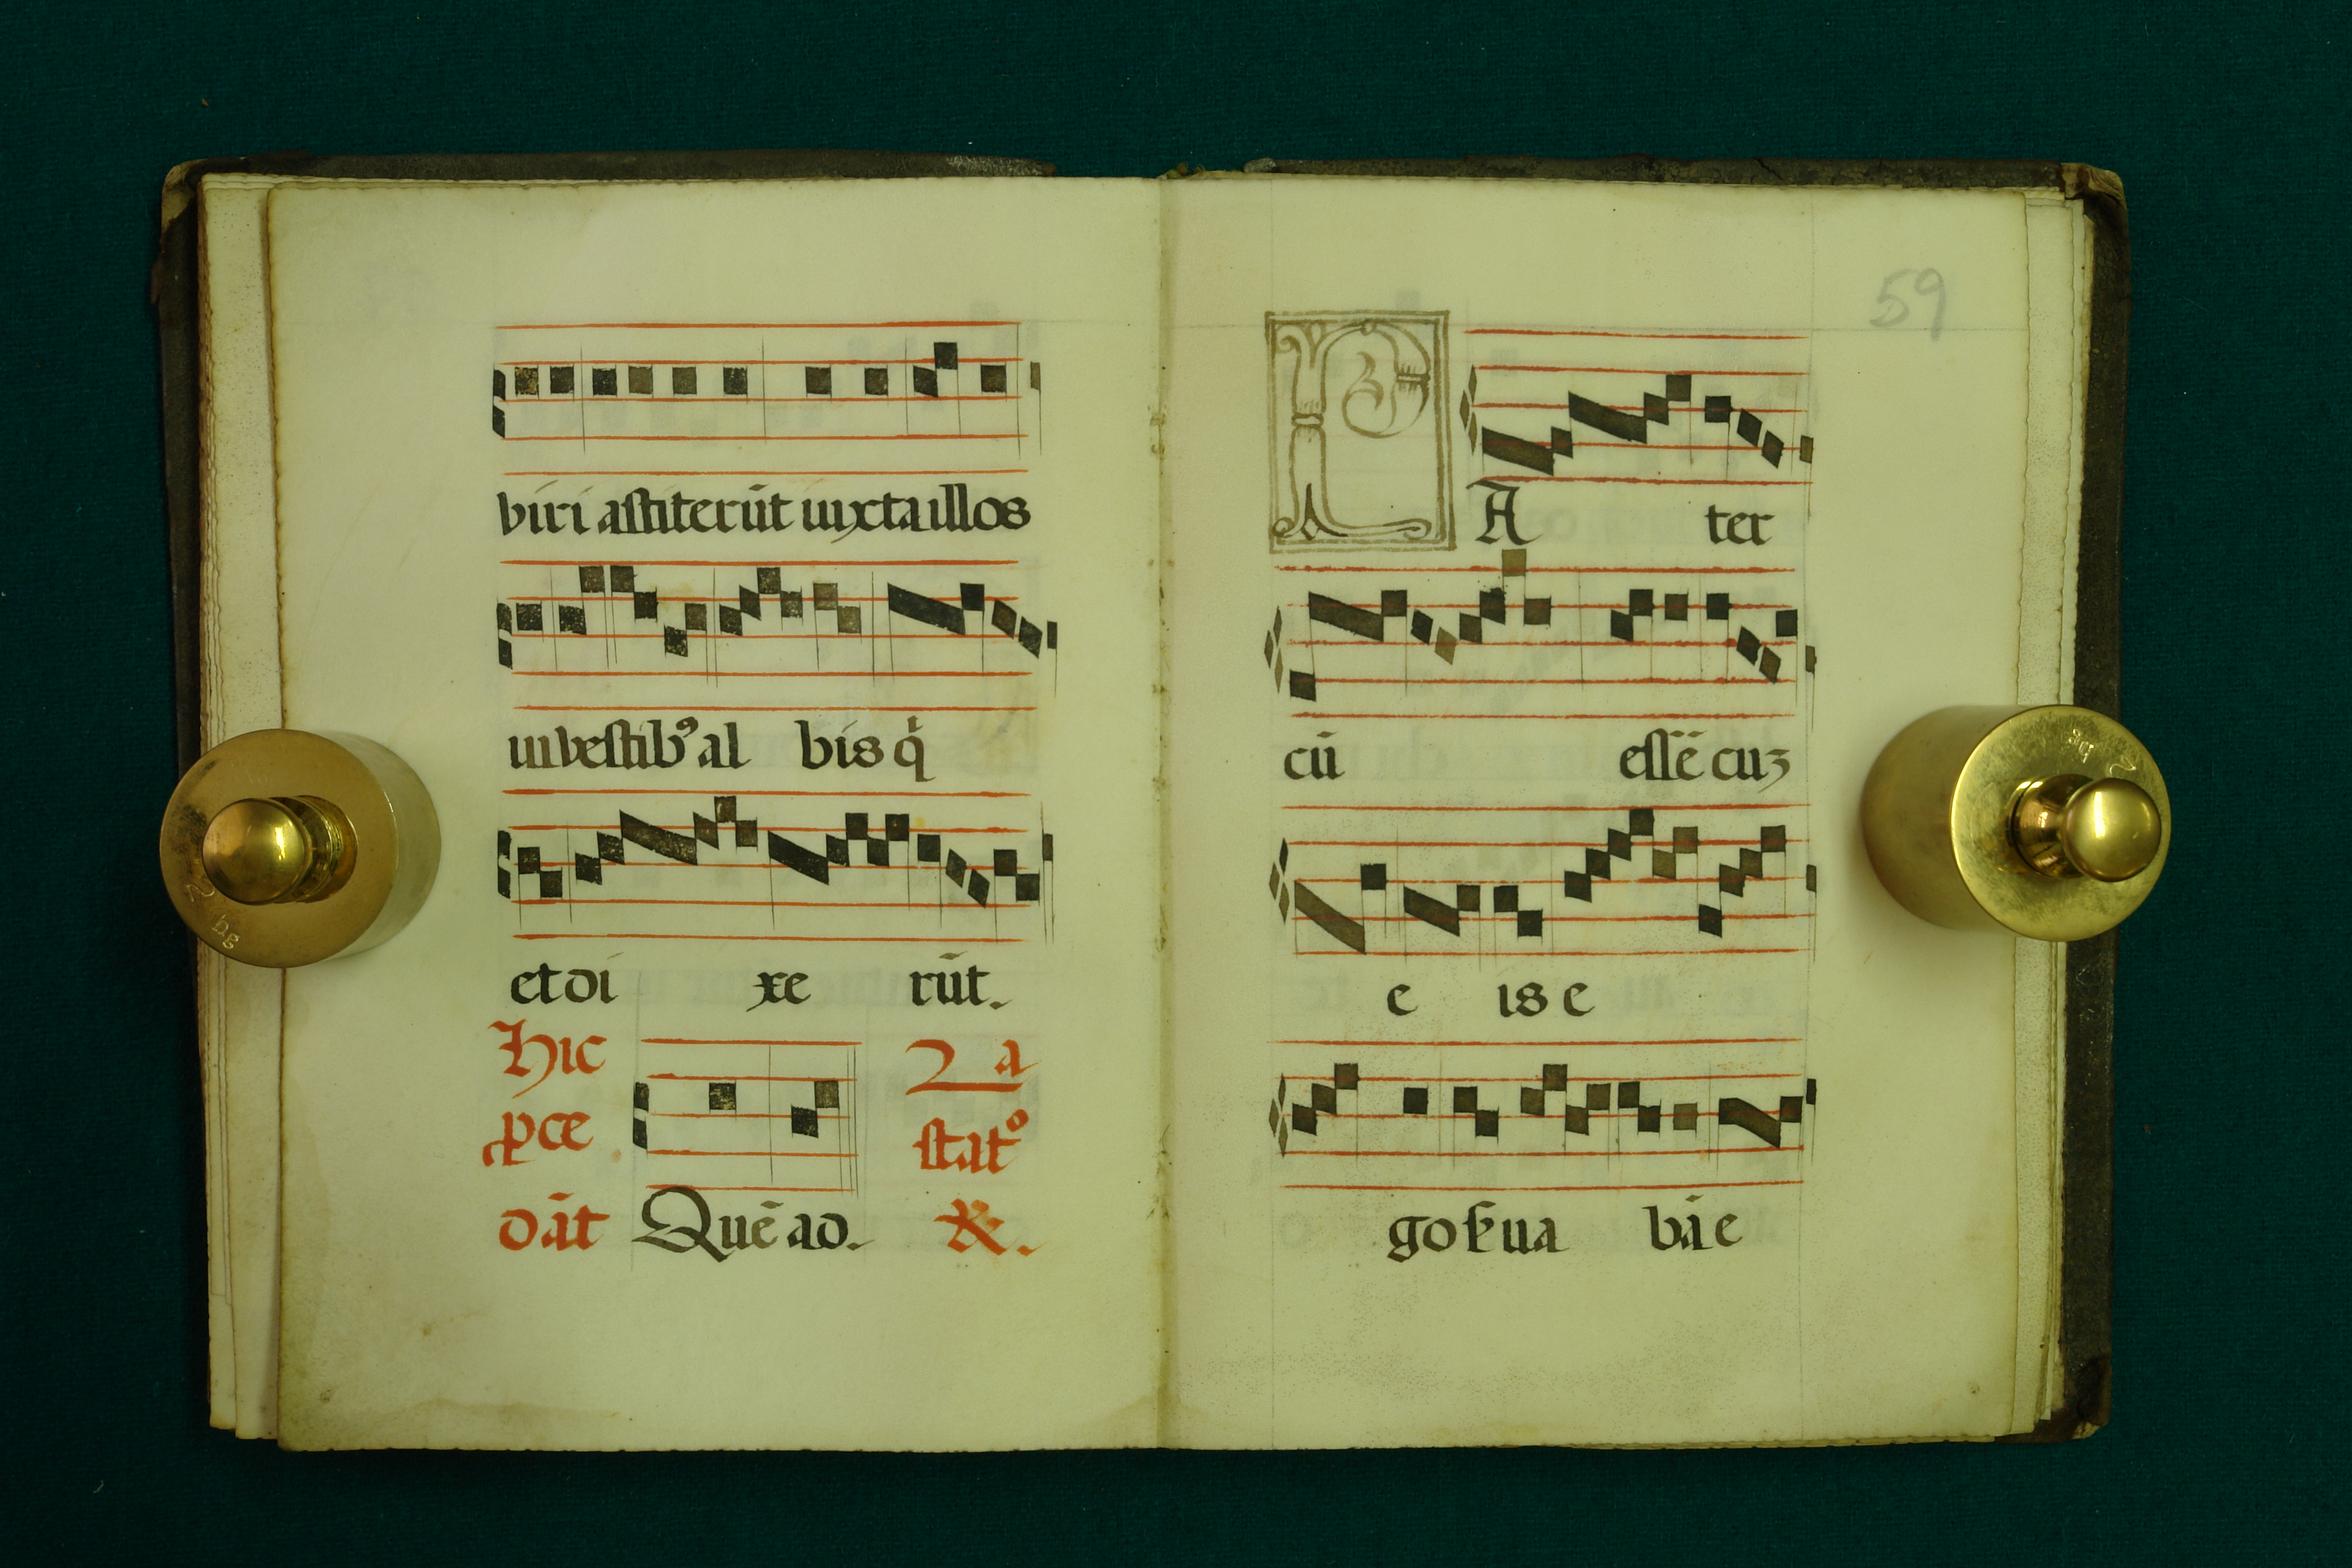 biri astiterūt iuxta illos
in bestibꝰ al bis q̇
et di xe rūt.
Hic
ꝓce
dāt
Quē ad.
2a
statº
R.
59
PA ter
cū essē cuz
e is e
go ẜua bā e